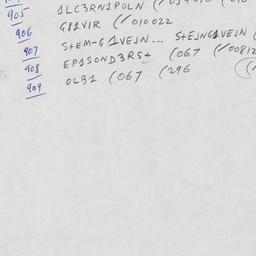 905 1LC3RN1POLN
906 G81VIR (/010022
907 S+EM-G1VEJN... S+EJNG1VEJN (
908 EP1SOND3RS+ (067 (/00812
909 OLB1 (067 (296